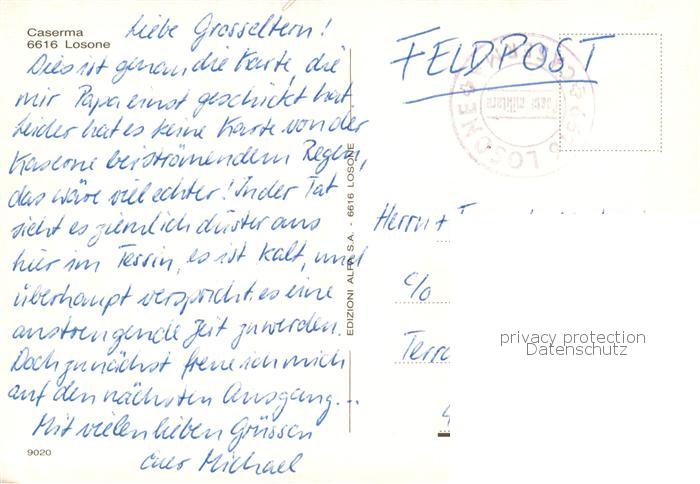 Caserma
6616 Losone
Liebe Grosseltern!
Dies ist genau die Karte, die
mir Papa einst geschickt hat.
Leider hat es keine Karte von der
Kaserne bei strömendem Regen,
das wäre viel echter! In der Tat
sieht es ziemlich düster aus
hier im Tessin, es ist kalt, und
überhaupt verspricht es eine
anstrengende Zeit zu werden.
Doch zunächst freue ich mich
auf den nächsten Ausgang...
Mit vielen lieben Grüssen
Euer Michael
9020
EDIZIONI ALFA S.A. - 6616 LOSONE
FELDPOST
LOSONE
Herrn +
c/o
privacy protection
Datenschutz